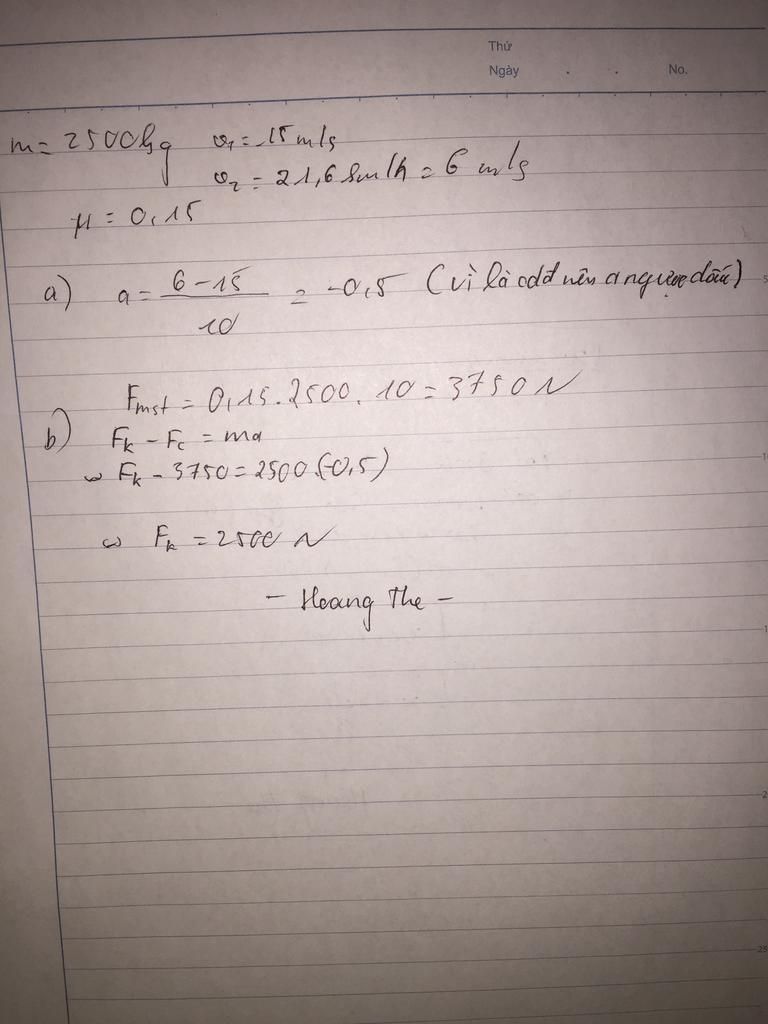 Thứ
Ngày . . No.
m = 2500kg v₁ = 15 m/s
v₂ = 21,6 km/h = 6 m/s
μ = 0,15
a) a = (6 - 15)/10 = -0,5 (vì là cđđ nên a ngược dấu)
Fmst = 0,15 . 2500 . 10 = 3750 N
b) Fk - Fc = ma
⇔ Fk - 3750 = 2500(-0,5)
⇔ Fk = 2500 N
- Hoang The -